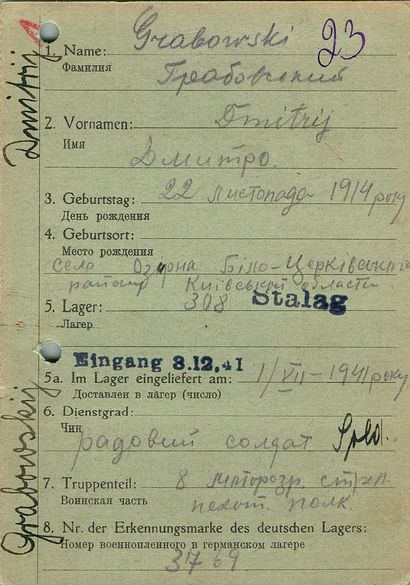 Grabowski 23
1. Name:
Фамилия Грабовський
2. Vornamen: Dmitrij
Имя Дмитро.
3. Geburtstag: 22 листопада 1914 року
День рождения
4. Geburtsort:
Место рождения
село Озірна Біло-Церківського
району Київській области
5. Lager: 308 Stalag
Лагер
Eingang 3.12.41
5a. Im Lager eingeliefert am: 1/VII-1941 року
Доставлен в лагер (число)
6. Dienstgrad:
Чин
радовий солдат Sold.
7. Truppenteil: 8
Воинская часть пехот. полк
8. Nr. der Erkennungsmarke des deutschen Lagers:
Номер военнопленного в германском лагере
31769
Grabowskij Dmitrij